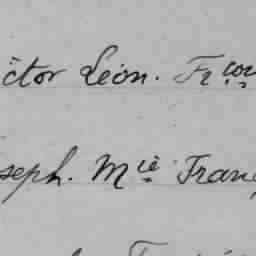 ictor Léon. Fr çoi
seph. M ie Franç